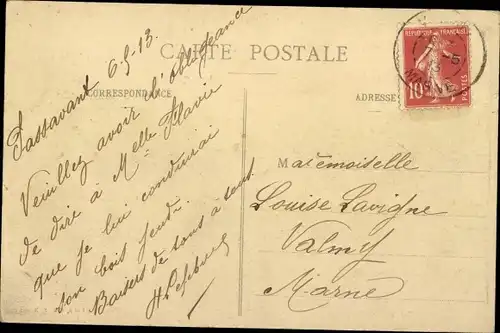 CARTE POSTALE
CORRESPONDANCE
ADRESSE
Passavant 6.5.13.
Veuillez avoir l'obligeance
de dire à Melle Flavie
que je lui conduirai
son bois jeudi.
Baisers de tous à tous.
RÉPUBLIQUE FRANÇAISE
10
POSTES
MARNE
Mademoiselle
Louise Lavigne
Valmy
Marne